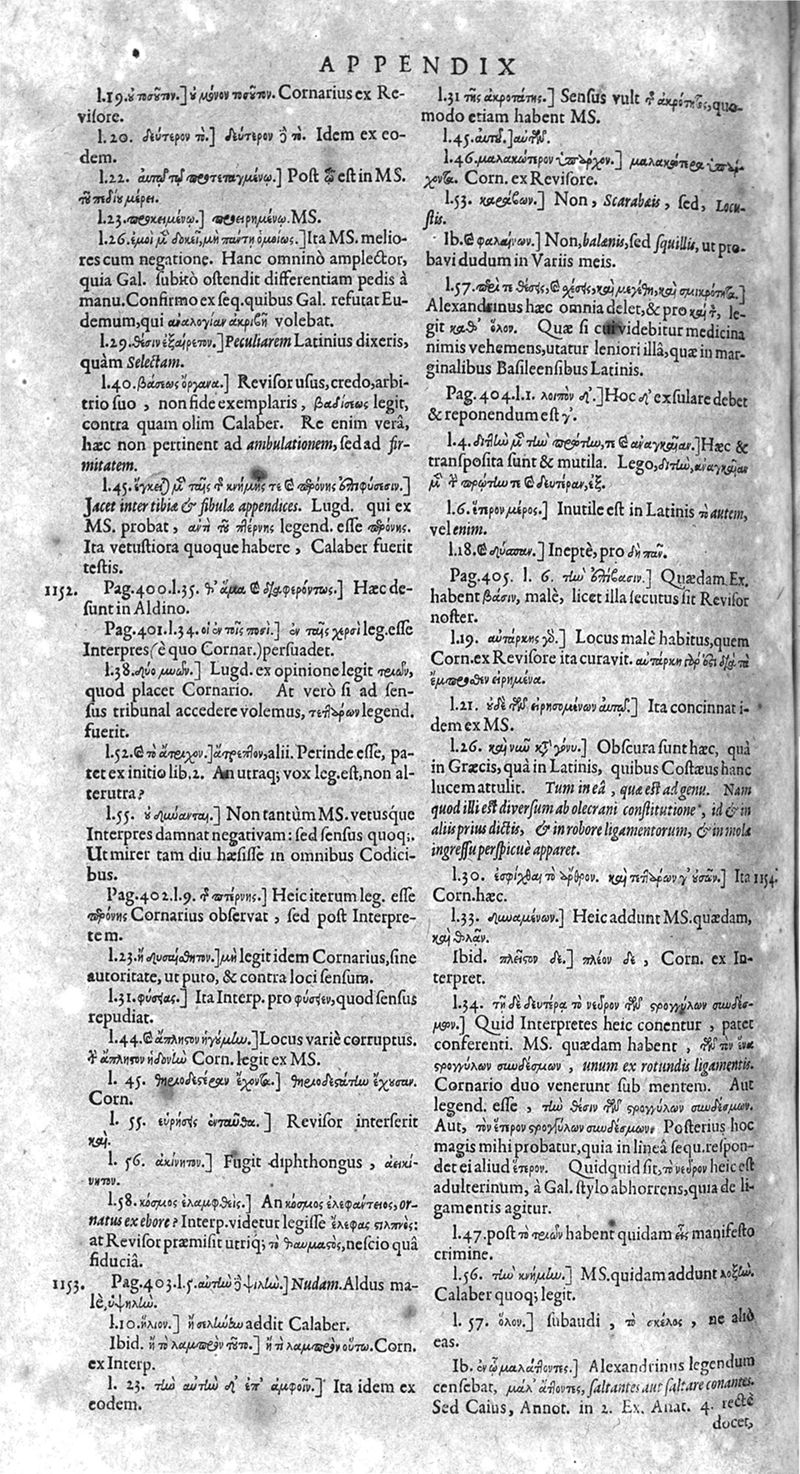 APPENDIX
l.19. ὐ τοσοῦτον.] ὐ μόνον τοσοῦτον. Cornarius ex Re-
visore.
l.20. δεύτερον τὸ.] δεύτερον ὃ τὸ. Idem ex eo-
dem.
l.22. αὐτῷ τῷ προτεταγμένῳ.] Post est in MS.
τοῦ πεδίου μέρει.
l.23. προκειμένῳ.] προειρημένῳ. MS.
l.26. ἐμοὶ μὲν δοκεῖ, μὴ πάντη ὁμοίως.] Ita MS. melio-
res cum negatione. Hanc omninò amplector,
quia Gal. subitò ostendit differentiam pedis à
manu. Confirmo ex seq. quibus Gal. refutat Eu-
demum, qui ἀναλογίαν ἀκριβῆ volebat.
l.29. θέσιν ἐξαίρετον.] Peculiarem Latinius dixeris,
quàm Selectam.
l.40. βάσεως ὄργανα.] Revisor usus, credo, arbi-
trio suo, non fide exemplaris, βαδίσεως legit,
contra quam olim Calaber. Re enim verâ,
hæc non pertinent ad ambulationem, sed ad fir-
mitatem.
l.45. ἔγκειται μὲν ταῖς τῆς κνήμης τε καὶ περόνης ἐπιφύσεσιν.]
Jacet inter tibiæ & fibulæ appendices. Lugd. qui ex
MS. probat, ἀντὶ τοῦ πτέρνης legend. esse περόνης.
Ita vetustiora quoque habere, Calaber fuerit
testis.
1152. Pag. 400. l.35. θ' ἅμα καὶ διαφερόντως.] Hæc de-
sunt in Aldino.
Pag. 401. l.34. οἱ ἐν τοῖς ποσί.] ἐν ταῖς χερσὶ leg. esse
Interpres (è quo Cornar.) persuadet.
l.38. δύο μυῶν.] Lugd. ex opinione legit τριῶν,
quod placet Cornario. At verò si ad sen-
sus tribunal accedere volemus, τεττάρων legend.
fuerit.
l.52. καὶ τὸ ἄτριχον.] ἄτρεπτον, alii. Perinde esse, pa-
tet ex initio lib.2. An utraq; vox leg. est, non al-
terutra?
l.55. ὐ δύνανται.] Non tantùm MS. vetusque
Interpres damnat negativam: sed sensus quoq;.
Ut mirer tam diu hæsisse in omnibus Codici-
bus.
Pag. 402. l.9. τῆς πτέρνης.] Heic iterum leg. esse
περόνης Cornarius observat, sed post Interpre-
tem.
l.23. ἢ δυσπαθητον.] μὴ legit idem Cornarius, sine
autoritate, ut puto, & contra loci sensum.
l.31. φύσεως.] Ita Interp. pro quod sensus
repudiat.
l.44. καὶ ἄπληστον ἡγούμην.] Locus variè corruptus.
τῆς ἄπληστον ἡδονὴν Corn. legit ex MS.
l.45. θηριωδέστεραν ἔχοντα.] θηριωδεστάτην ἔχουσαν.
Corn.
l.55. εὑρήσεις ἐνταῦθα.] Revisor interserit
καὶ.
l.56. ἀκίνητον.] Fugit diphthongus, ἀεικί-
νητον.
l.58. κόσμος ἐλαμφθείς.] An κόσμος ἐλεφάντειος, or-
natus ex ebore? Interp. videtur legisse ἔλεφας
at Revisor præmisit utriq; τὸ θαυμαστὸς, nescio quâ
fiduciâ.
1153. Pag. 403. l.5. αὐτὴν ὃ ψιλὴν.] Nudam. Aldus ma-
lè, ὑψηλὴν.
l.10. ἥλιον.] ἢ σελήνην addit Calaber.
Ibid. ἢ τὸ λαμπρὸν τοῦτο.] ἢ τὸ λαμπρὸν οὕτω. Corn.
ex Interp.
l.23. τὴν αὐτὴν δ' ἐπ' ἀμφοῖν.] Ita idem ex
eodem.
l.31 τῆς ἀκροτάτης.] Sensus vult τῆς ἀκρότητος, quo-
modo etiam habent MS.
l.45. αὐτοῦ.] αὐτῶν.
l.46. μαλακώτερον ὑπάρχον.] μαλακώτερα ὑπάρ-
χοντα. Corn. ex Revisore.
l.53. καράβων.] Non, Scarabæis, sed, Locu-
stis.
Ib. καὶ φαλαίνων.] Non, balænis, sed squillis, ut pro-
bavi dudum in Variis meis.
l.57. περί τε θέσεις, καὶ σχέσεις, καὶ μεγέθη, καὶ σμικρότητα.]
Alexandrinus hæc omnia delet, & pro καὶ τῆς, le-
git καθ' ὅλον. Quæ si cui videbitur medicina
nimis vehemens, utatur leniori illâ, quæ in mar-
ginalibus Basileensibus Latinis.
Pag. 404. l.1. λοιπὸν δ'.] Hoc δ' exsulare debet
& reponendum est γ'.
l.4. διττὴν μὲν τὴν πρώτην, τε καὶ ἀναγκαίαν.] Hæc &
transposita sunt & mutila. Lego, διττὴν, ἀναγκαίαν
μὲν τῆς πρώτην τε καὶ δευτέραν, ἐξ.
l.6. ἕτερον μέρος.] Inutile est in Latinis τὸ autem,
vel enim.
l.18. καὶ δύσπαν.] Ineptè, pro δὴ πᾶν.
Pag. 405. l.6. τὴν ἐπίβασιν.] Quædam Ex.
habent βάσιν, malè, licet illa secutus sit Revisor
noster.
l.19. αὐτάρκης γὰρ.] Locus malè habitus, quem
Corn. ex Revisore ita curavit. αὐτάρκη γὰρ ἐστι διὰ τὰ
ἔμπροσθεν εἰρημένα.
l.21. ὐδὲ τῶν εἰρησομένων αὐτῶ.] Ita concinnat i-
dem ex MS.
l.26. καὶ νῦν κατὰ γόνυ.] Obscura sunt hæc, quà
in Græcis, quà in Latinis, quibus Costæus hanc
lucem attulit. Tum in eâ, quæ est ad genu. Nam
quod illi est diversum ab olecrani constitutione, id & in
aliis prius dictis, & in robore ligamentorum, & in mola
ingressu perspicuè apparet.
l.30. ἐσφίχθαι τὸ ἄρθρον. καὶ τεττάρων γ' οὐσῶν.] Ita 1154.
Corn. hæc.
l.33. δυναμένων.] Heic addunt MS. quædam,
καὶ θλᾶν.
Ibid. πλεῖστον δὲ.] πλέον δὲ, Corn. ex In-
terpret.
l.34. τῇ δὲ δευτέρᾳ τὸ νεῦρον τῶν στρογγύλων συνδέσ-
μων.] Quid Interpretes heic conentur, patet
conferenti. MS. quædam habent, τῶν τὸν ἕνα
στρογγύλων συνδέσμων, unum ex rotundis ligamentis.
Cornario duo venerunt sub mentem. Aut
legend. esse, τὴν θέσιν τῶν στρογγύλων συνδέσμων.
Aut, τὸν ἕτερον στρογγύλων συνδέσμων. Posterius hoc
magis mihi probatur, quia in lineâ sequ. respon-
det ei aliud ἕτερον. Quidquid sit, τὸ νεῦρον heic est
adulterinum, à Gal. stylo abhorrens, quia de li-
gamentis agitur.
l.47. post τὸ τριῶν habent quidam εἷς manifesto
crimine.
l.56. τὴν κνήμην.] MS. quidam addunt λοξὴν.
Calaber quoq; legit.
l.57. ὅλον.] subaudi, τὸ σκέλος, ne aliò
eas.
Ib. ἐν ᾧ μαλάττοντες.] Alexandrinus legendum
censebat, μάλ' ἅττοντες, saltantes aut saltare conantes.
Sed Caius, Annot. in 2. Ex. Anat. 4. rectè
docet,